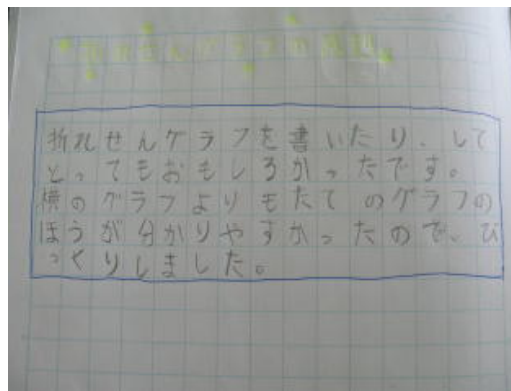 折れせんグラフを書いたり、して
とってもおもしろかったです。
横のグラフよりもたてのグラフの
ほうが分かりやすかったので、び
っくりしました。